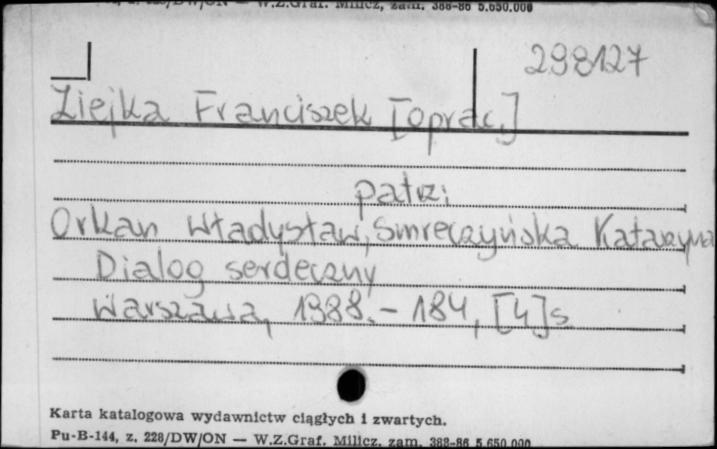 W.Z.Graf. Milicz, zam. 388-86 5.650.000
298127
Ziejka Franciszek [oprac.]
patrz:
Orkan Władysław, Smreczyńska Katarzyna
Dialog serdeczny
Warszawa, 1988. - 184, [4] s
Karta katalogowa wydawnictw ciągłych i zwartych.
Pu-B-144, z. 228/DW/ON — W.Z.Graf. Milicz, zam. 388-86 5.650.000